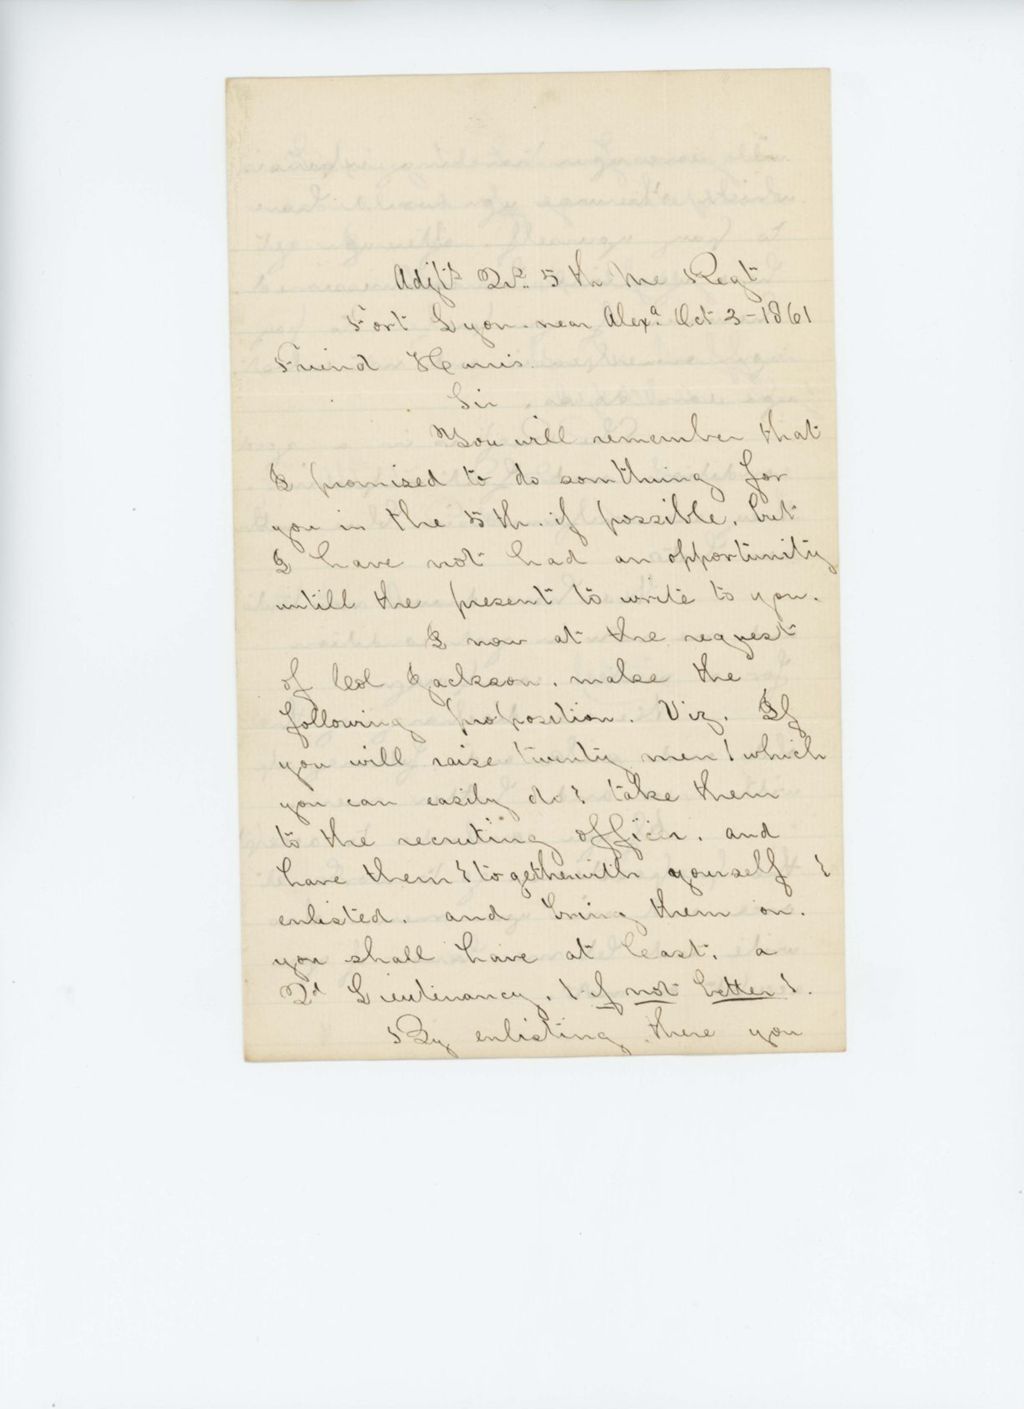 Adjt's Qrs. 5th Me Regt
Fort Lyon. near Alexa. Oct 3-1861
Friend Harris.
Sir
You will remember that
I promised to do somthing for
you in the 5th. if possible. but
I have not had an opportunity
untill the present to write to you.
I now at the request
of Col Jackson. make the
following proposition. Viz. If
you will raise twenty men (which
you can easily do) take them
to the recruting officer. and
have them (togetherwith yourself)
enlisted. and bring them on.
you shall have at least. a
2d Lieutenancy. (if not better).
By enlisting there you